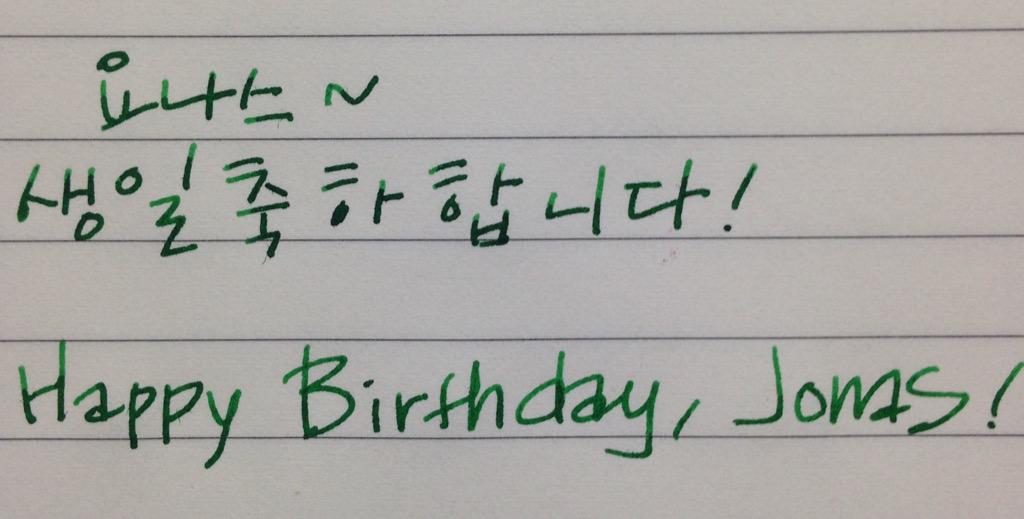 요나스~
생일축하합니다!
Happy Birthday, Jonas!